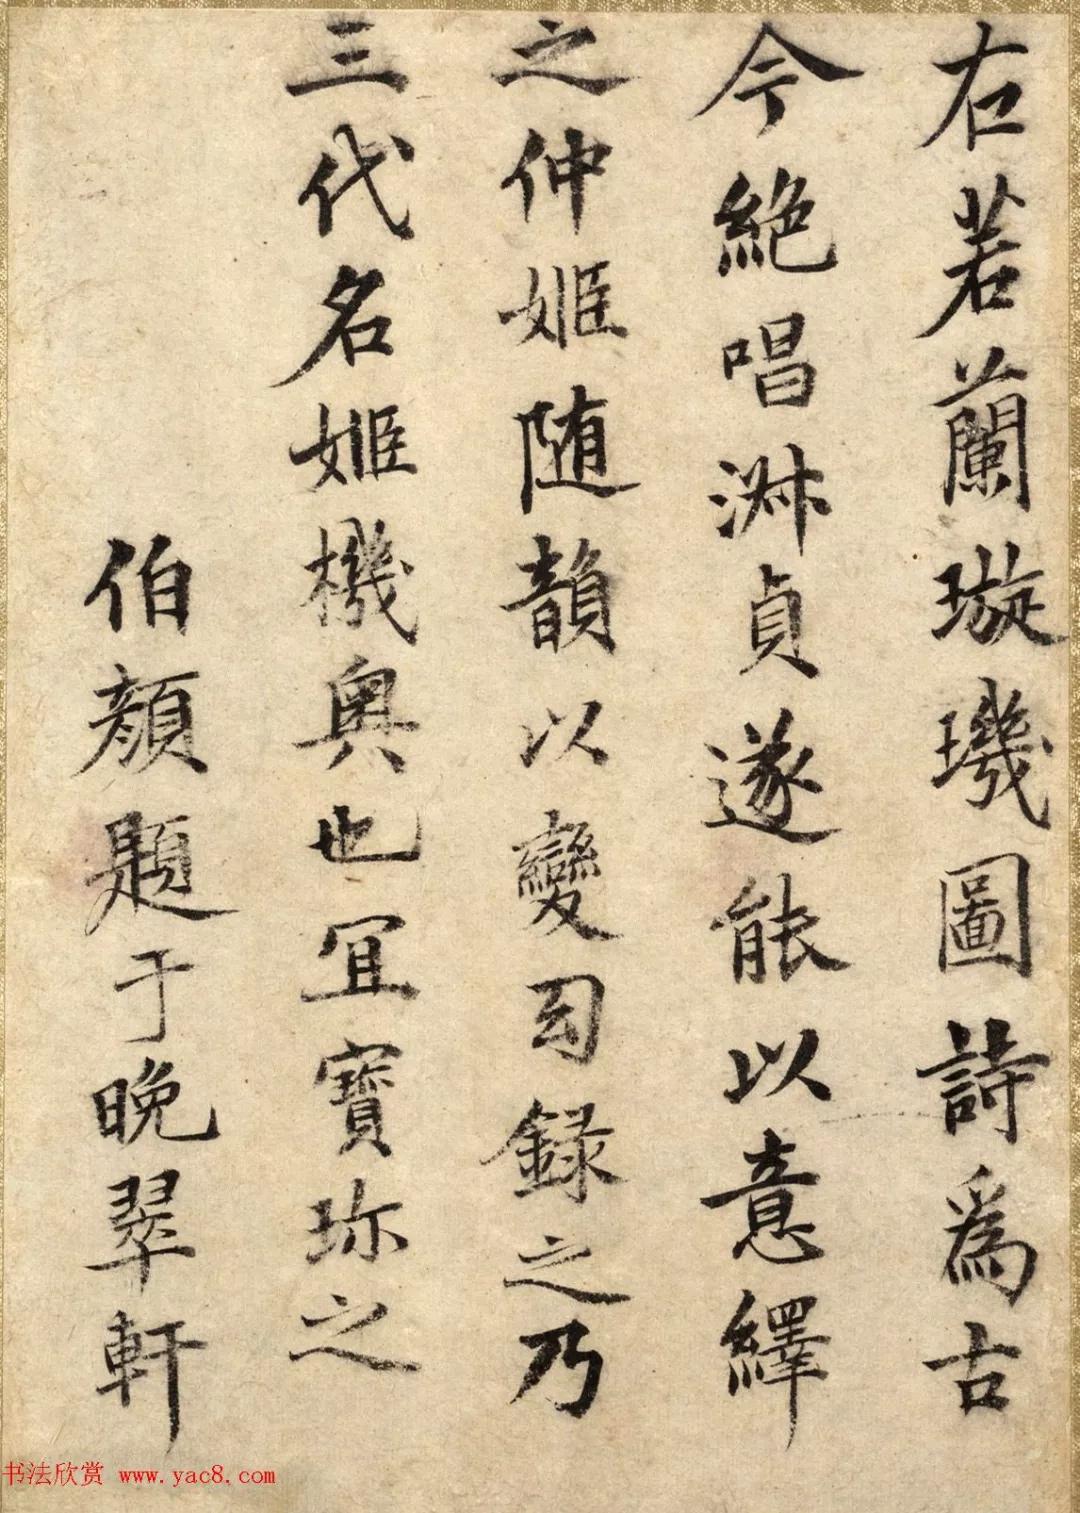 右若蘭璇璣圖詩為古
今絕唱淑貞遂能以意繹
之仲姬随韻以變司錄之乃
三代名姬機奥也宜寶珎之
伯顔題于晚翠軒
书法欣赏 www.yac8.com